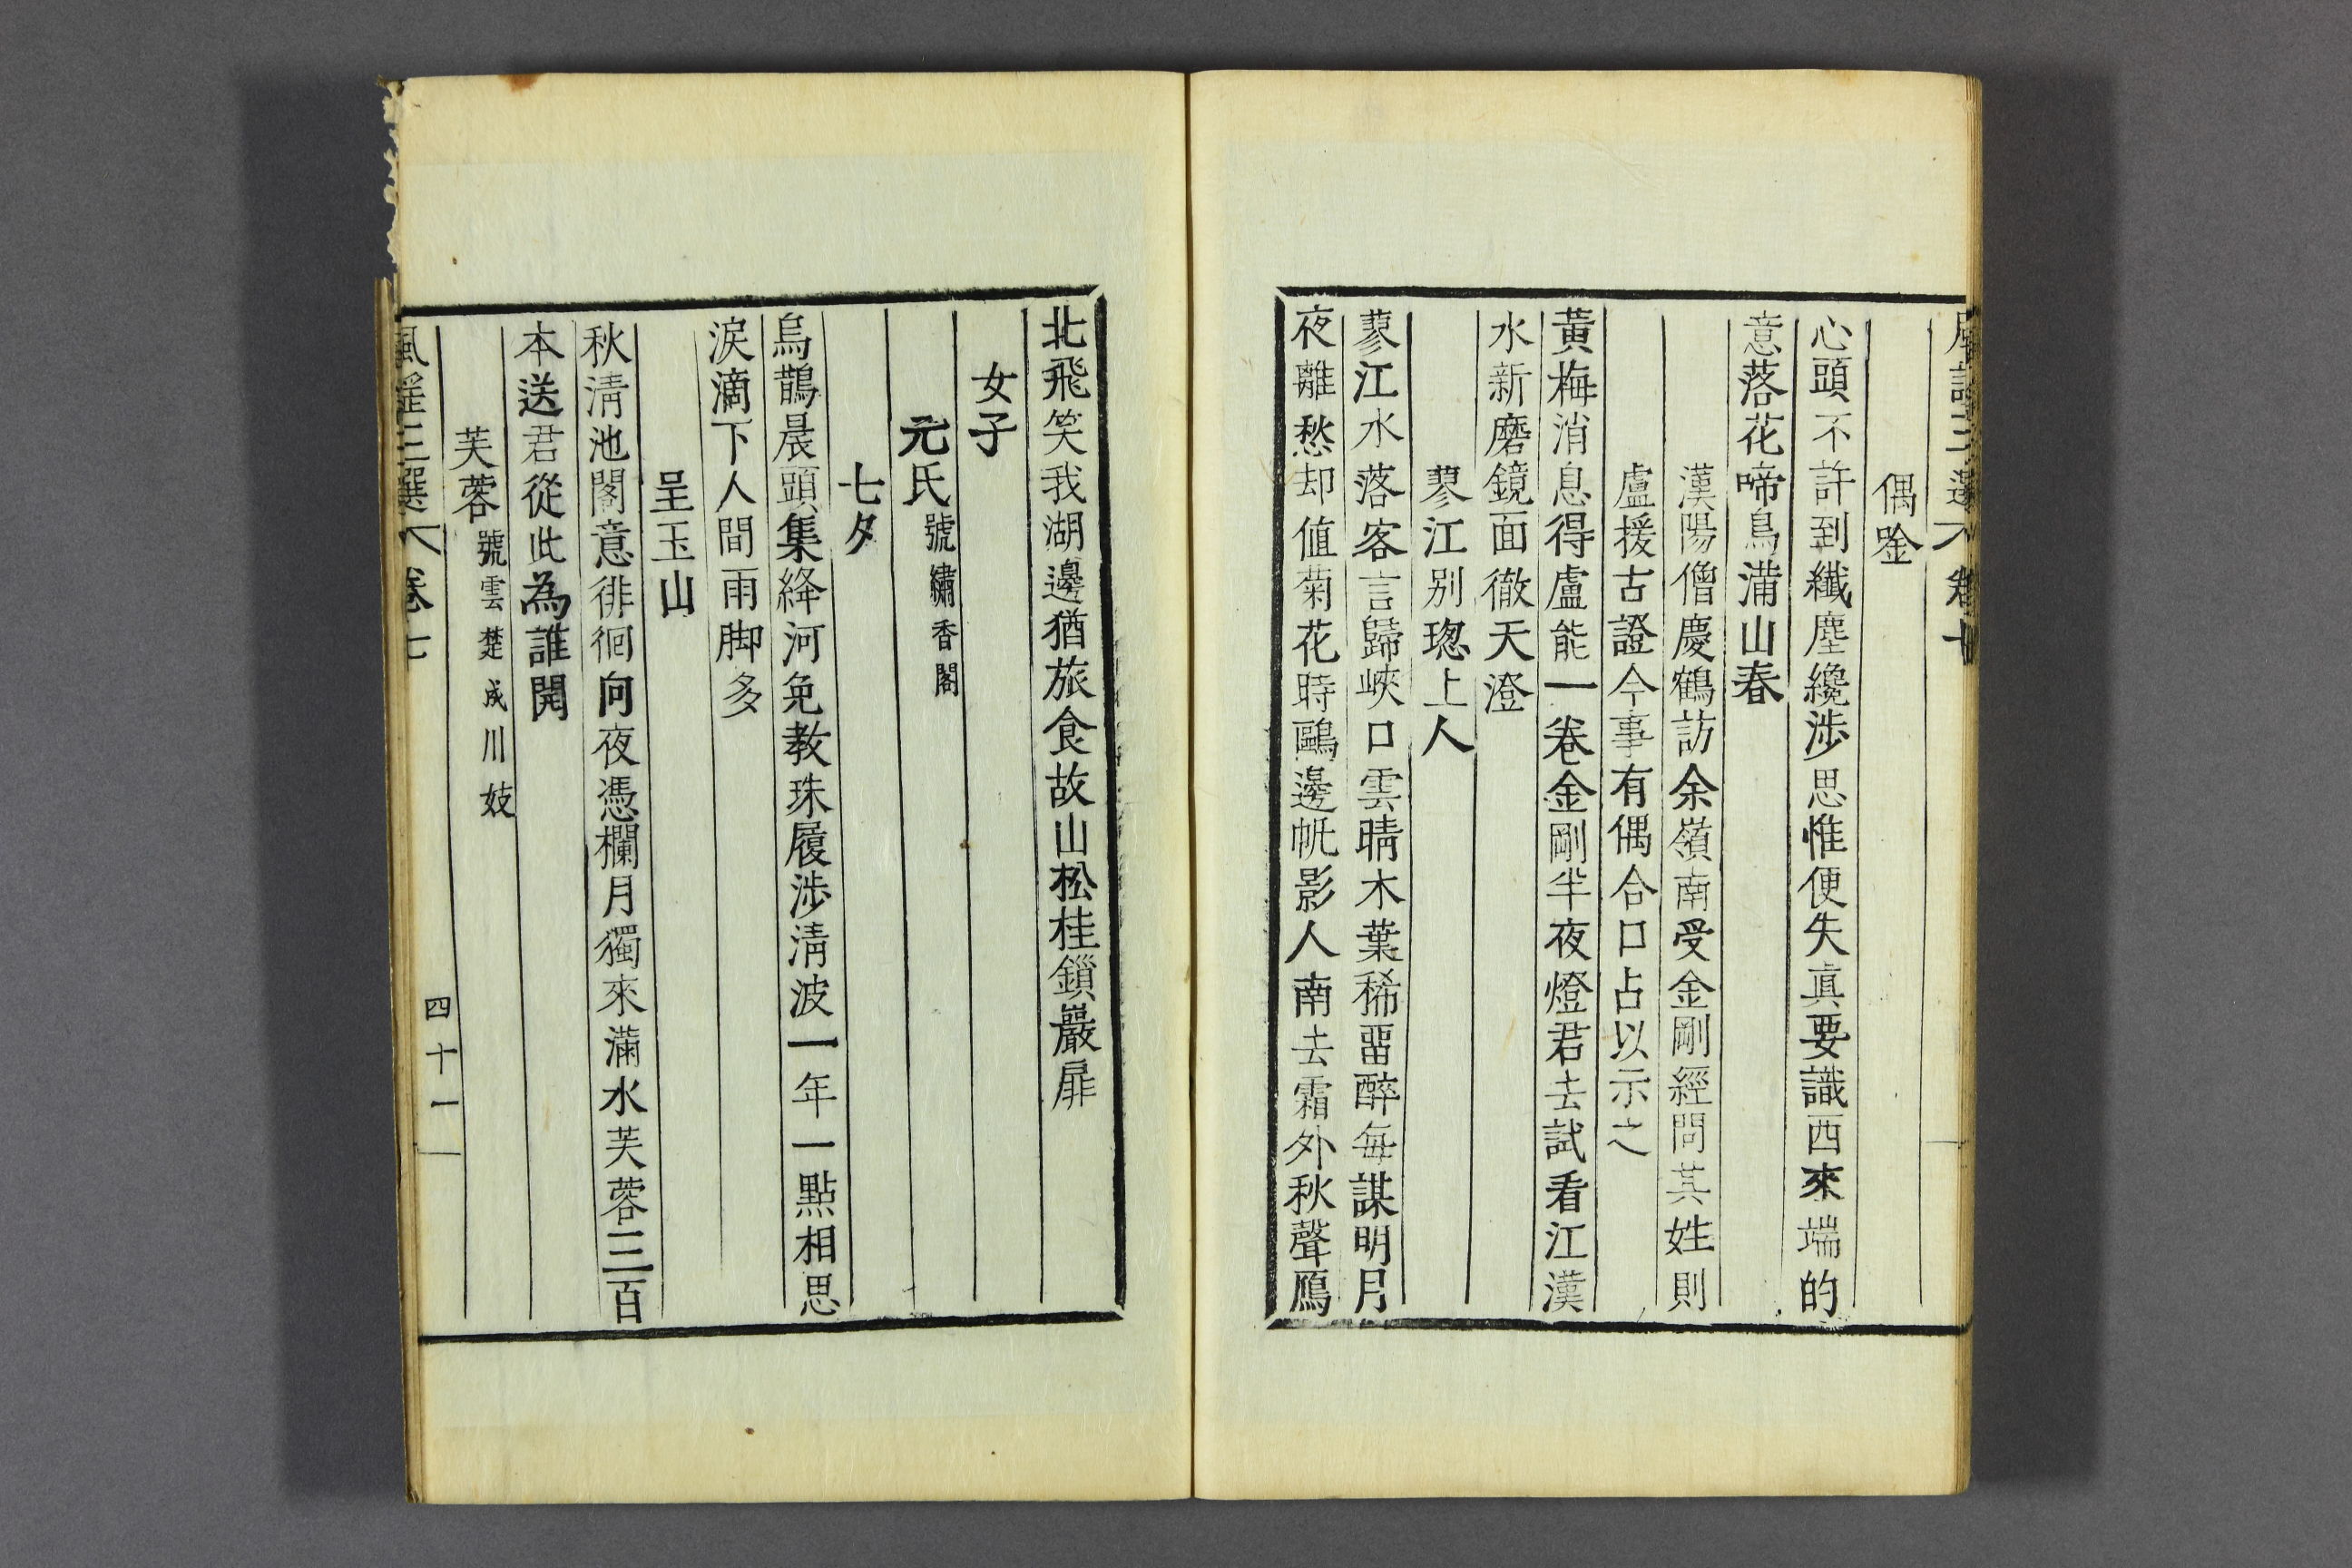 風謠三選 卷七
偶唫
心頭不許到纖塵纔涉思惟便失眞要識西來端的
意落花啼鳥滿山春
漢陽僧慶鶴訪余嶺南受金剛經問其姓則
盧援古證今事有偶合口占以示之
黃梅消息得盧能一卷金剛半夜燈君去試看江漢
水新磨鏡面徹天澄
蓼江別璁上人
蓼江水落客言歸峽口雲晴木葉稀畱醉每謀明月
夜離愁却值菊花時鷗邊帆影人南去霜外秋聲鴈
北飛笑我湖邊猶旅食故山松桂鎖巖扉
女子
元氏號繡香閣
七夕
烏鵲晨頭集絳河免教珠履涉淸波一年一點相思
淚滴下人間雨脚多
呈玉山
秋淸池閣意徘徊向夜憑欄月獨來滿水芙蓉三百
本送君從此為誰開
芙蓉號雲楚成川妓
風謠三選 卷七
四十一